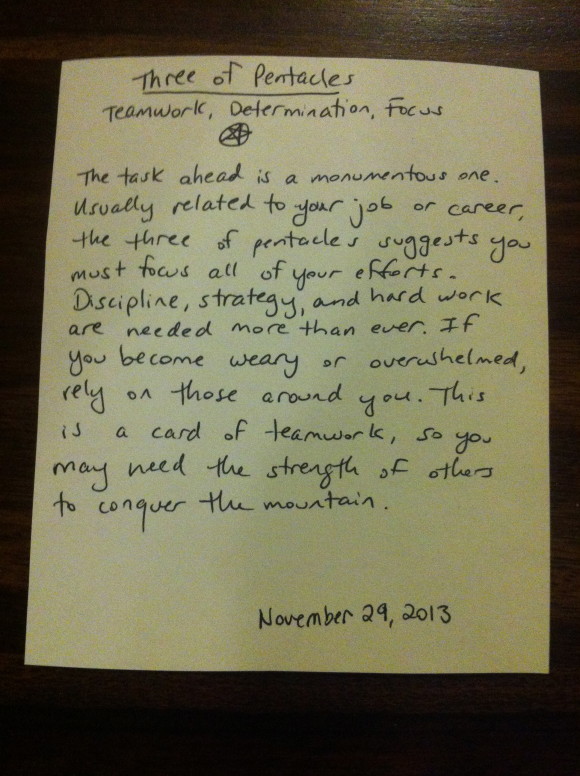 Three of Pentacles
Teamwork, Determination, Focus
The task ahead is a monumentous one.
Usually related to your job or career,
the three of pentacles suggests you
must focus all of your efforts.
Discipline, strategy, and hard work
are needed more than ever. If
you become weary or overwhelmed,
rely on those around you. This
is a card of teamwork, so you
may need the strength of others
to conquer the mountain.
November 29, 2013